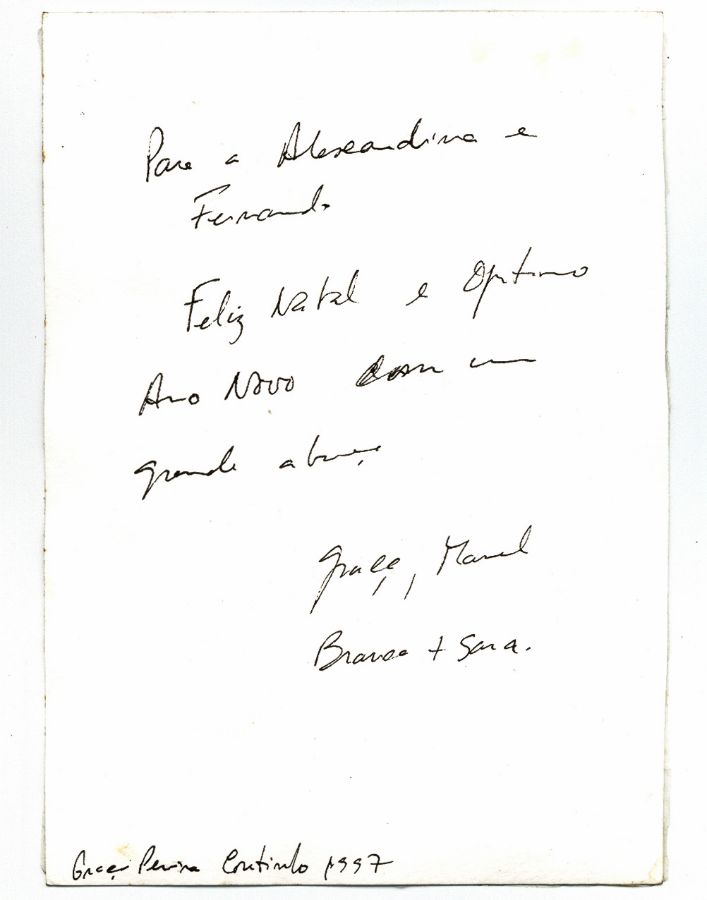 Para a Alexandrina e
Fernando
Feliz Natal e Optimo
Ano Novo com um
grande abraço
Graça, Manel
Branca + Sara.
Graça Pereira Coutinho 1997